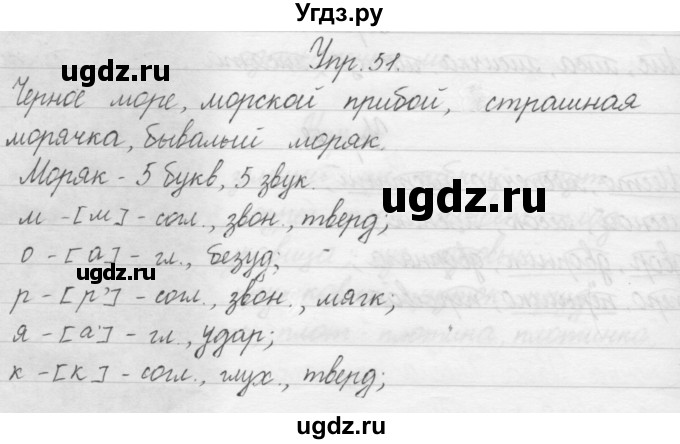 Угдз.ру
ugdz.ru
Упр. 51.
Черное море, морской прибой, страшная
морячка, бывалый моряк.
Моряк - 5 букв, 5 звук.
м - [м] - согл., звон., тверд;
ugdz.ru
о - [а] - гл., безуд;
ugdz.ru
р - [р'] - согл., звон., мягк;
я - [а] - гл., удар;
к - [к] - согл., глух., тверд;
ugdz.ru